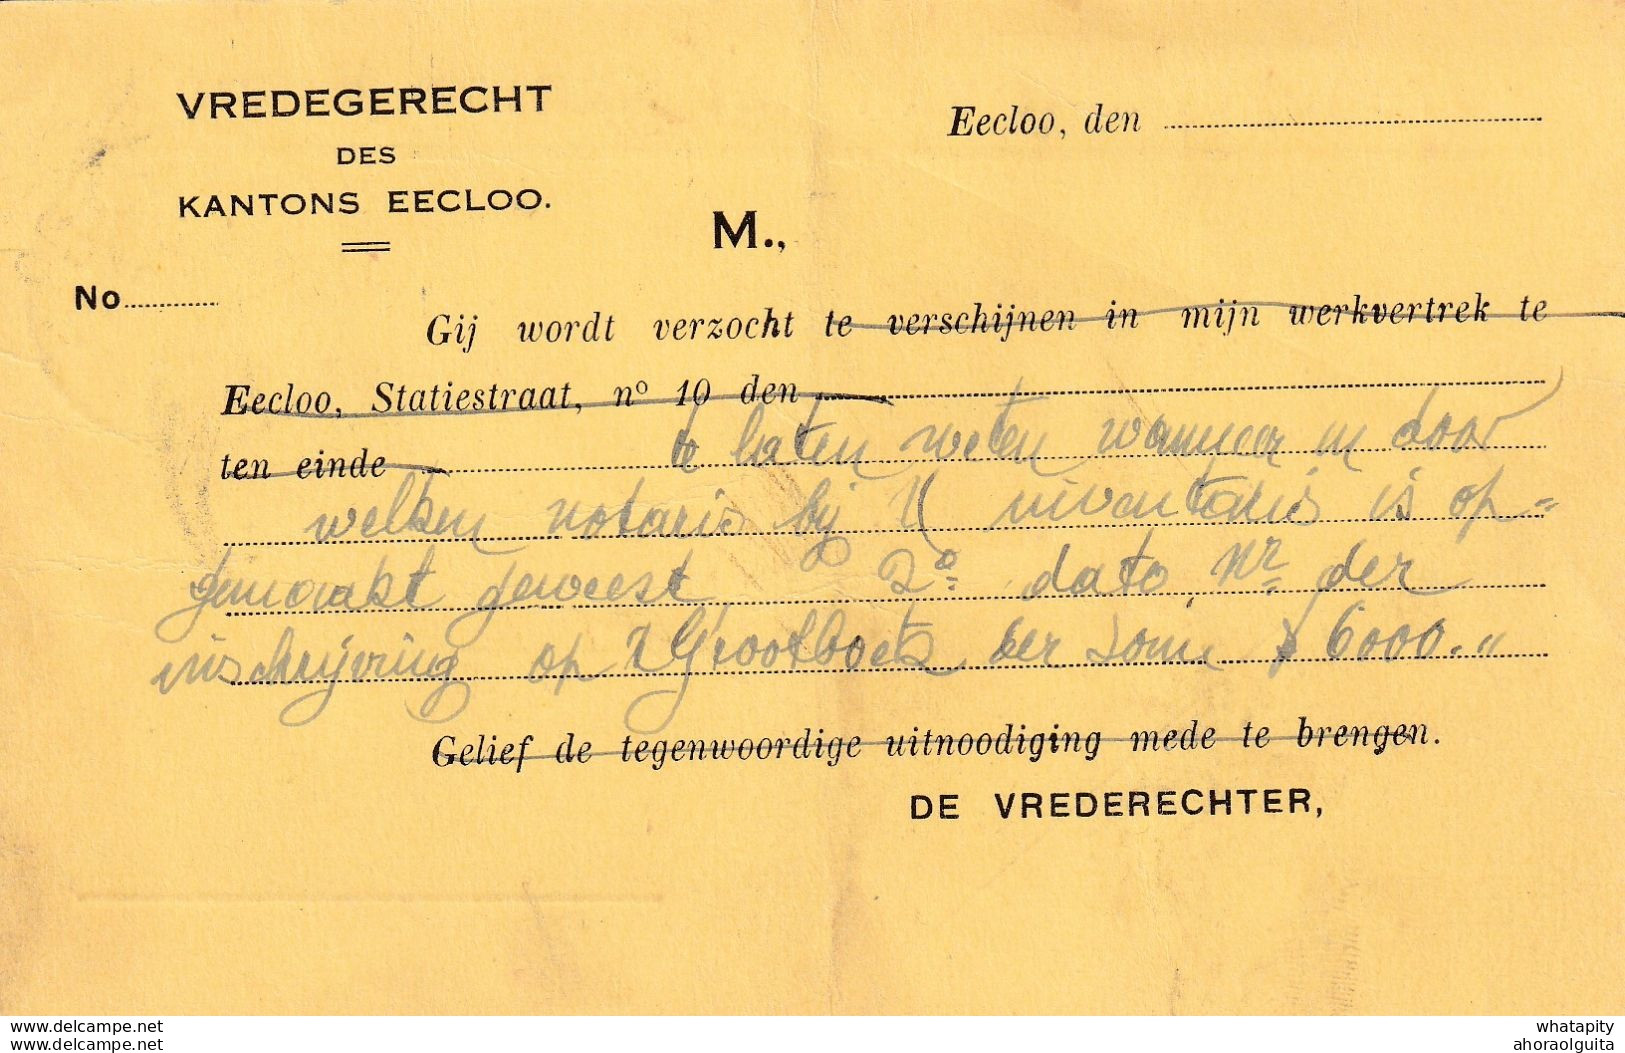 VREDEGERECHT
DES
KANTONS EECLOO.
Eecloo, den
M.,
No
Gij wordt verzocht te verschijnen in mijn werkvertrek te
Eecloo, Statiestraat, nº 10 den
ten einde te laten weten wanneer en door
welken notaris bij U inventaris is op=
gemaakt geweest 2º dato, Nr der
inschrijving op 't Grootboek der som 6000."
Gelief de tegenwoordige uitnoodiging mede te brengen.
DE VREDERECHTER,
www.delcampe.net
www.delcampe.net
whatapity
ahoraolguita